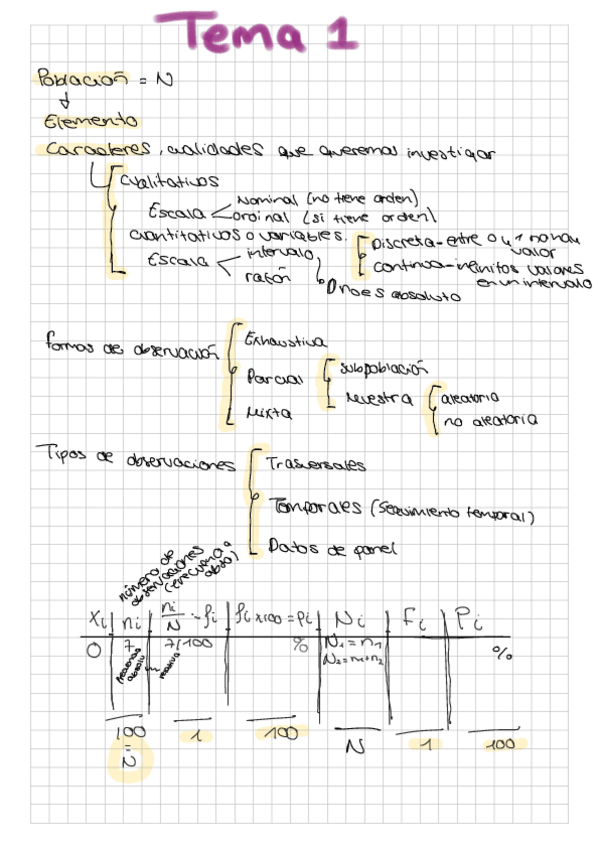 Tema 1
Población = N
Elemento
Caracteres, cualidades que queremos investigar
Cualitativos
Escala
Nominal (no tiene orden)
ordinal (si tiene orden)
Cuantitativos o variables.
Discreta - entre 0 y 1 no hay valor
continua - infinitos valores en un intervalo
Escala
intervalo
razón
0 no es absoluto
formas de observación
Exhaustiva
Parcial
subpoblación
Muestra
aleatoria
no aleatoria
Mixta
Tipos de observaciones
Trasversales
Temporales (seguimiento temporal)
Datos de panel
número de observaciones (frecuencia abso)
Xi | ni | ni/N = fi | fi x100 = pi | Ni | Fi | Pi
0 | 7 | 7/100 | % | N1 = n1 | %
N2 = n1+n2
relativa
100 | 1 | 100 | N | 1 | 100
=
N